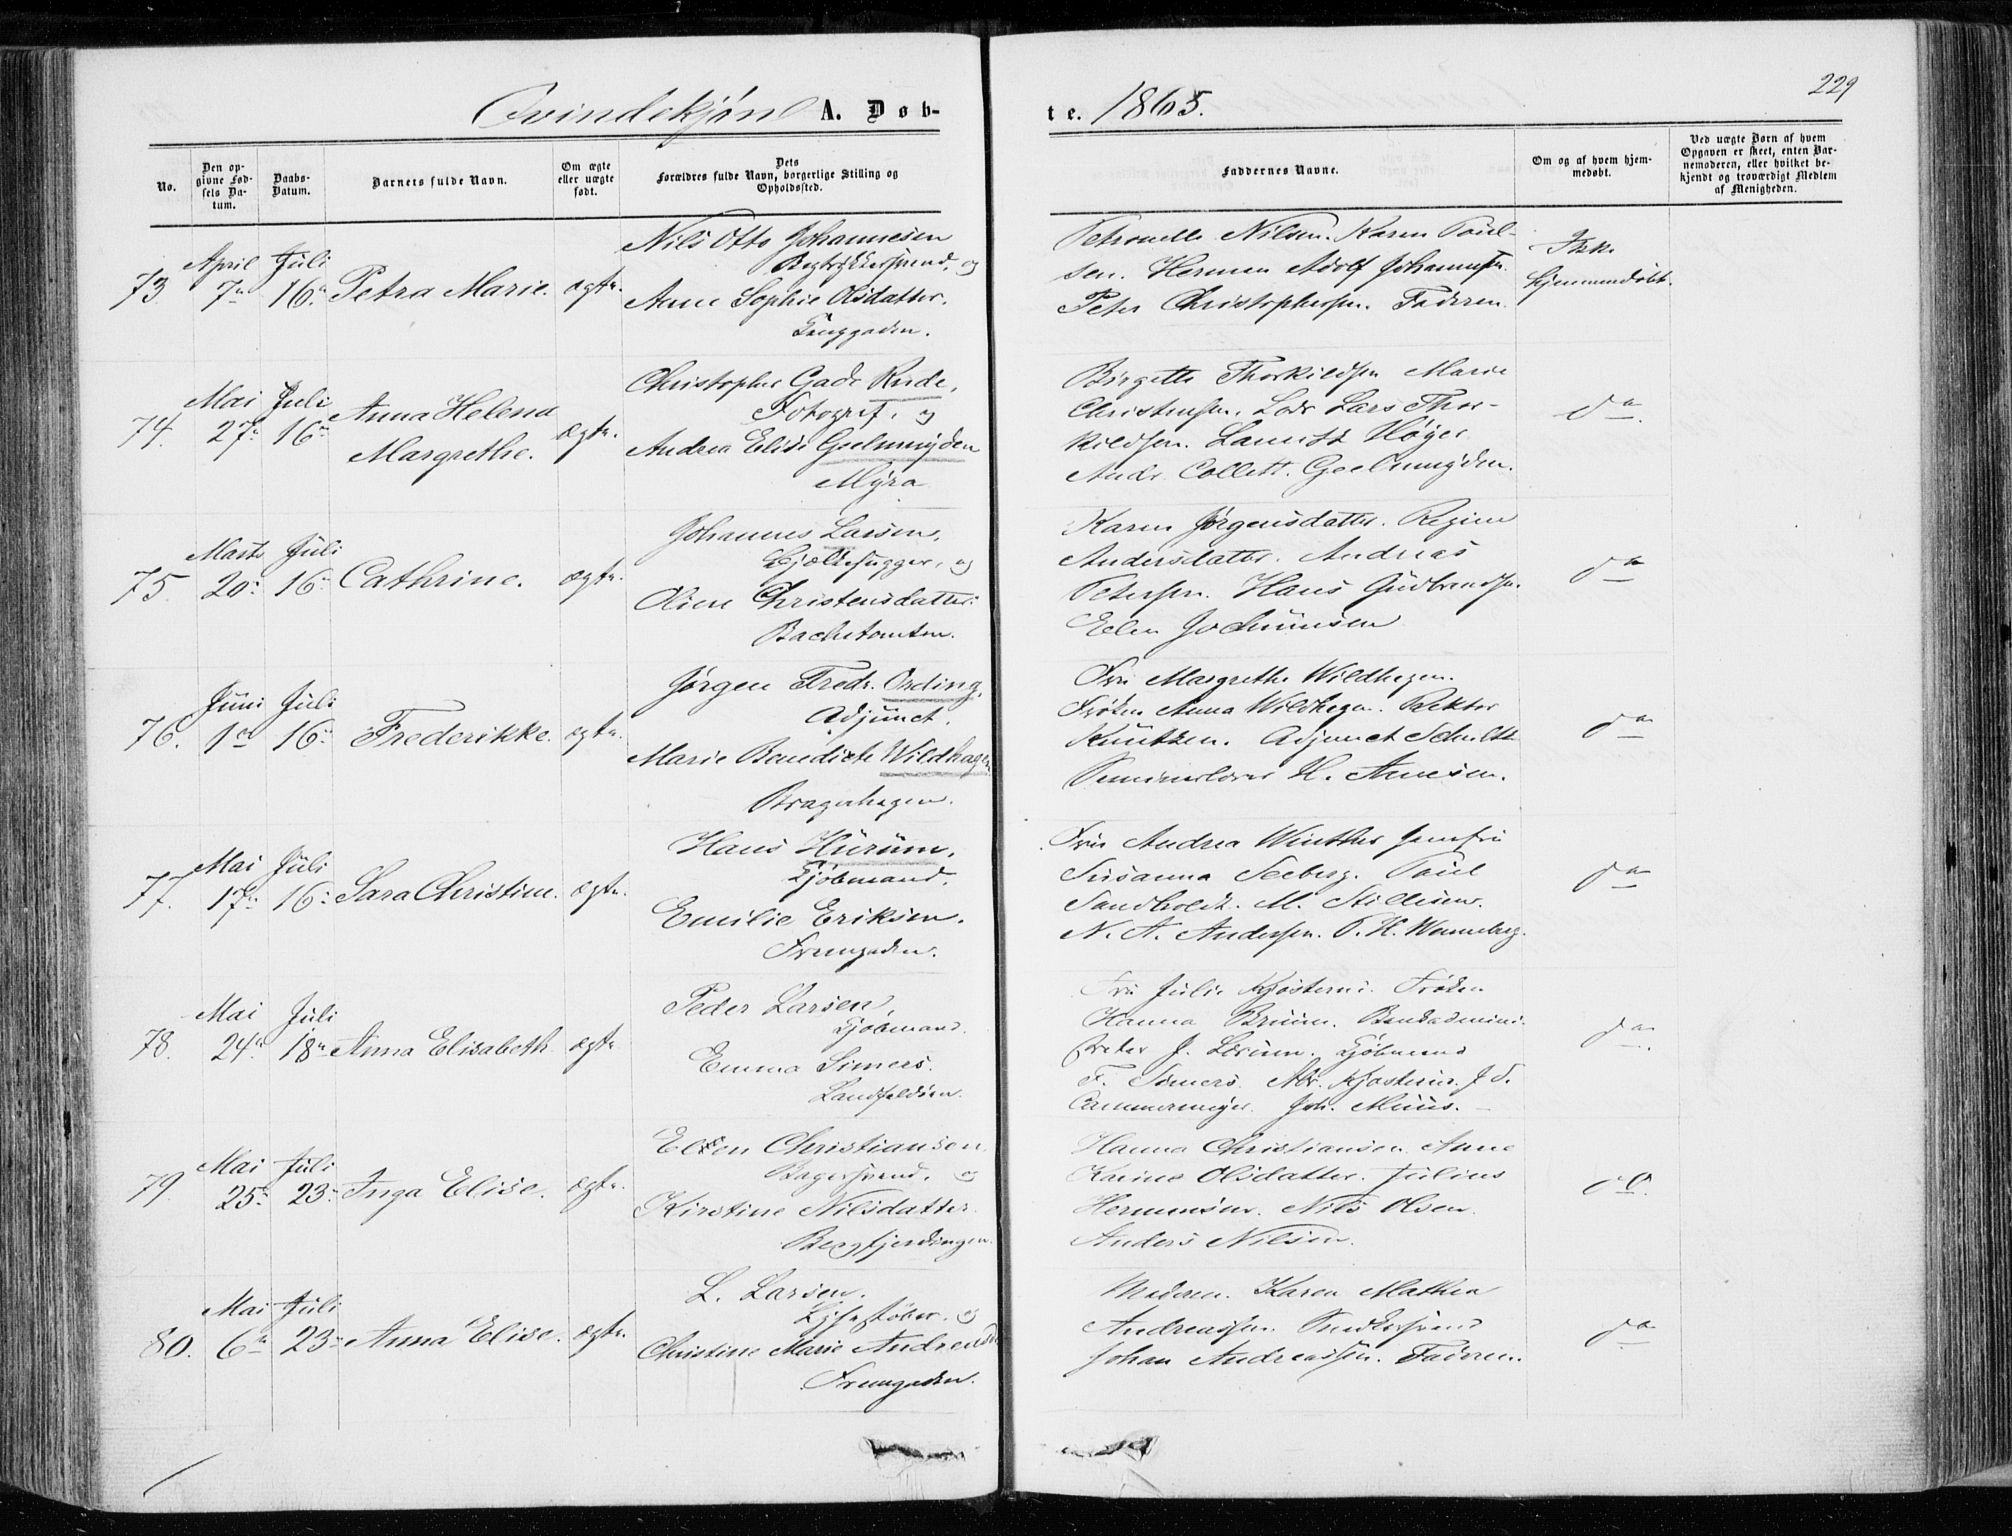 229
Qvindekjøn A. Døb-
te. 1865.
No.
Den op-
givne Fød-
sels Da-
tum.
Daabs-
Datum.
Barnets fulde Navn.
Om ægte
eller uægte
født.
Dets
Forældres fulde Navn, borgerlige Stilling og
Opholdssted.
Faddernes Navne.
Om og af hvem hjem-
medøbt.
Ved uægte Børn af hvem
Opgaven er skeet, enten Bar-
nemoderen, eller hvilket be-
kjendt og troværdigt Medlem
af Menigheden.
73. April 7de Juli 16de Petra Marie. ægte.
Nils Otto Johannesen
og
Anne Sophie Olsdatter.
Petronelle Nilsen. Karen Paul-
sen. Herman Adolf Johannesen.
Peter Christophersen. Faderen.
Ikke
hjemmedøbt.
74. Mai 27de Juli 16de Anna Helena
Margrethe. ægte.
Christopher Gade Rude,
Fotograf, og
Andrea Elise Geelmuyden
Myra
Birgitte Thorkildsen Marie
Christensen. Lars Thor-
kildsen. Lauritz Høyer
Andr. Collett. Geelmuyden.
do
75. Marts 20de Juli 16de Cathrine. ægte.
Johannes Larsen,
og
Oline Christensdatter.
Bachetomten.
Karen Jørgensdatter. Regine
Andersdatter. Andreas
Petersen. Hans Gudbrandsen.
Jochumsen
do
76. Juni 1ste Juli 16de Frederikke. ægte.
Jørgen Fredr. Ording,
Adjunct.
Marie Benedicte Wildhagen
Bragerhagen.
Fru Margrethe Wildhagen.
Frøken Anna Wildhagen. Rektor
Knutzen. Adjunct Schultz
H. Arnesen.
do
77. Mai 17de Juli 16de Sara Christine. ægte.
Hans Hurum,
Kjøbmand.
Emilie Eriksen.
Fremgaden.
Fru Andrea Winther Jomfru
Susanna Seeberg. Paul
Sandholdt. M. Stillesen.
N. A. Andersen. P. H. Wenneberg.
do
78. Mai 24de Juli 18de Anna Elisabeth. ægte
Peder Larsen,
Kjøbmand.
Emma Simers.
Landfaldsøen.
Fru Julie Kjøsterud. Frøken
Hanna Bruun. Bankadmini-
strator J. Lærum. Kjøbmand
F. Simers. Kjøsterud. J. S.
Cammermeyer. Joh. Muus.
do
79. Mai 25de Juli 23de Inga Elise. ægte.
Christiansen
Bagersvend, og
Kirstine Nilsdatter.
Bergfjerdingen.
Hanna Christiansen. Anne
Karine Olsdatter. Julius
Hermansen. Nils Olsen.
Anders Nilsen.
do.
80. Mai 6te Juli 23de Anna Elise. ægte.
L. Larsen.
Lysestøber. og
Christine Marie Andreasdr
Fremgaden.
Moderen. Karen Mathea
Andreassen. Snedkersvend
Johan Andreassen. Faderen.
do